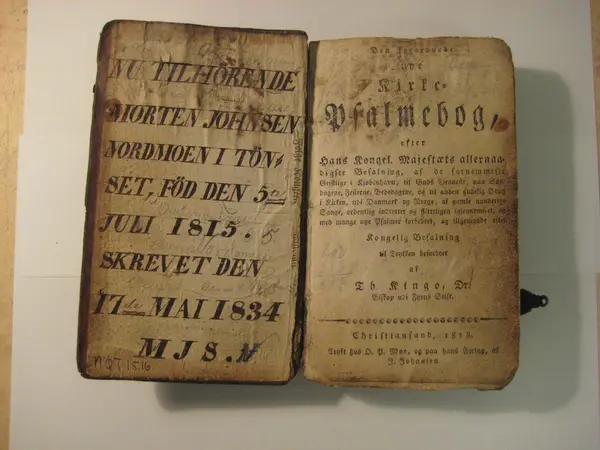 NU TILHÖRENDE
MORTEN JOHNSEN
NORDMOEN I TÖN=
SET, FÖD DEN 5te
JULI 1815.
SKREVET DEN
17de MAI 1834
M J S. N
NOT 1516
Den forordnede
nye
Kirke-
Psalmebog,
efter
Hans Kongel. Majestæts allernaa-
digste Befalning, af de fornemmeste
Geistlige i Kiøbenhavn, til Guds Tieneste, paa Søn-
dagene, Festerne, Bededagene, og til anden Brug
i Kirken, udi Danmark og Norge, af gamle
Sange, ordentlig indrettet og flitteligen igiennemset, og
med mange nye Psalmer forbedret, og
Kongelig Befalning
til Trykken befordret
af
Th. Kingo, Dr.
Biskop udi Fyens Stift.
Christiansand,
Trykt hos O. P. Moe, og paa hans Forlag, af
J. Johansen